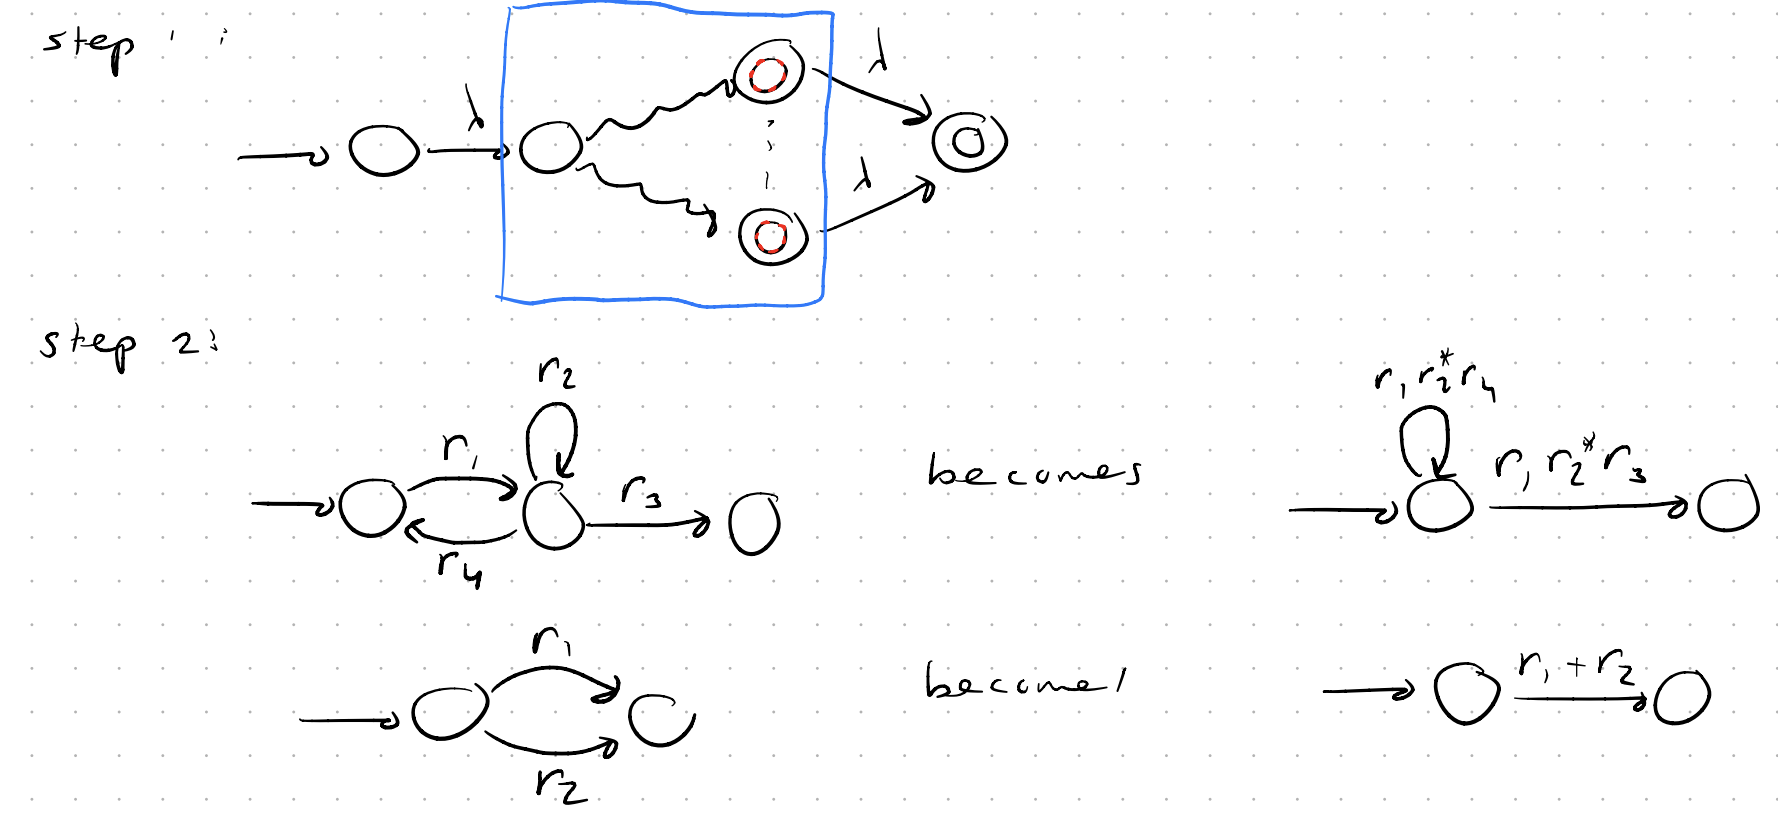 step 1:
λ
λ
λ
step 2:
r₂
r₁
r₃
r₄
becomes
r₁r₂*r₄
r₁r₂*r₃
r₁
r₂
becomes
r₁+r₂